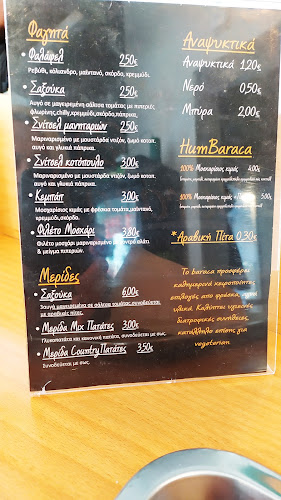 Φαγητά
• Φαλάφελ 2,50€
Ρεβύθι, κόλιανδρο, μαϊντανό, σκόρδο, κρεμμύδι.
• Σαξούκα 2,50€
Αυγό σε μαγειρεμένη σάλτσα τομάτας με πιπεριές
φλωρίνης,chilly,κρεμμύδι,σκόρδο,πάπρικα.
• Σνίτσελ μανιταριών 2,50€
Μαριναρισμένο με μουστάρδα ντιζόν, ζωμό κοτοπ.
αυγό και γλυκιά πάπρικα.
• Σνίτσελ κοτόπουλο 3,00€
Μαριναρισμένο με μουστάρδα ντιζόν, ζωμό κοτοπ.
αυγό και γλυκιά πάπρικα.
• Κεμπάπ 3,00€
Μοσχαρίσιος κιμάς με φρέσκια τομάτα,μαϊντανό,
κρεμμύδι,σκόρδο.
• Φιλέτο Μοσχάρι 3,80€
Φιλέτο μοσχάρι μαριναρισμένο με χοντρό αλάτι
& μείγμα πιπεριών.
Μερίδες
• Σαξούκα 6,00€
Σαγανάκι σε σάλτσα τομάτας,συνοδεύεται
με αραβικές πίτες.
• Μερίδα Mix Πατάτες 3,00€
Γλυκοπατάτα και κανονική πατάτα, συνοδεύεται με σως.
• Μερίδα Country Πατάτες 3,50€
Συνοδεύεται με σως.
Αναψυκτικά
Αναψυκτικά 1,20€
Νερό 0,50€
Μπύρα 2,00€
HumBaraca
100% Μοσχαρίσιος κιμάς 4,00€
100% Μοσχαρίσιος κιμάς 5,00€
* Αραβική Πίτα 0,30€
Το baraca προσφέρει
καθημερινά χειροποίητες
επιλογές από φρέσκα
υλικά. Καλύπτει
διατροφικές συνήθειες,
κατάλληλο επίσης για
vegetarian